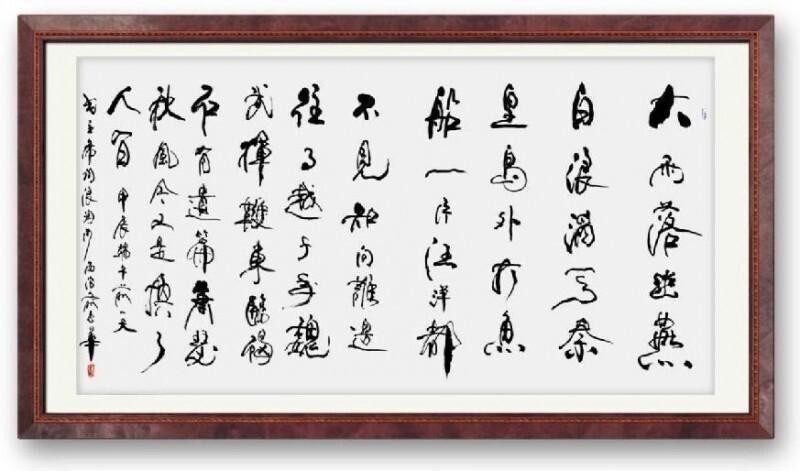 大雨落幽燕
白浪滔天秦
皇島外打魚
船一片汪洋都
不見知向誰邊
往事越千年魏
武揮鞭東臨碣
石有遺篇蕭瑟
秋風今又是換了
人間 甲辰端午前一天
主席詞浪淘沙 華